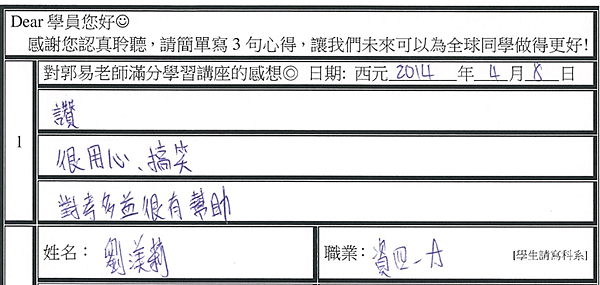 Dear 學員您好☺
感謝您認真聆聽，請簡單寫 3 句心得，讓我們未來可以為全球同學做得更好!
1 對郭易老師滿分學習講座的感想◎ 日期: 西元 2014 年 4 月 8 日
讚
很用心、搞笑
對考多益很有幫助
姓名： 劉美莉 職業： 資四-A [學生請寫科系]